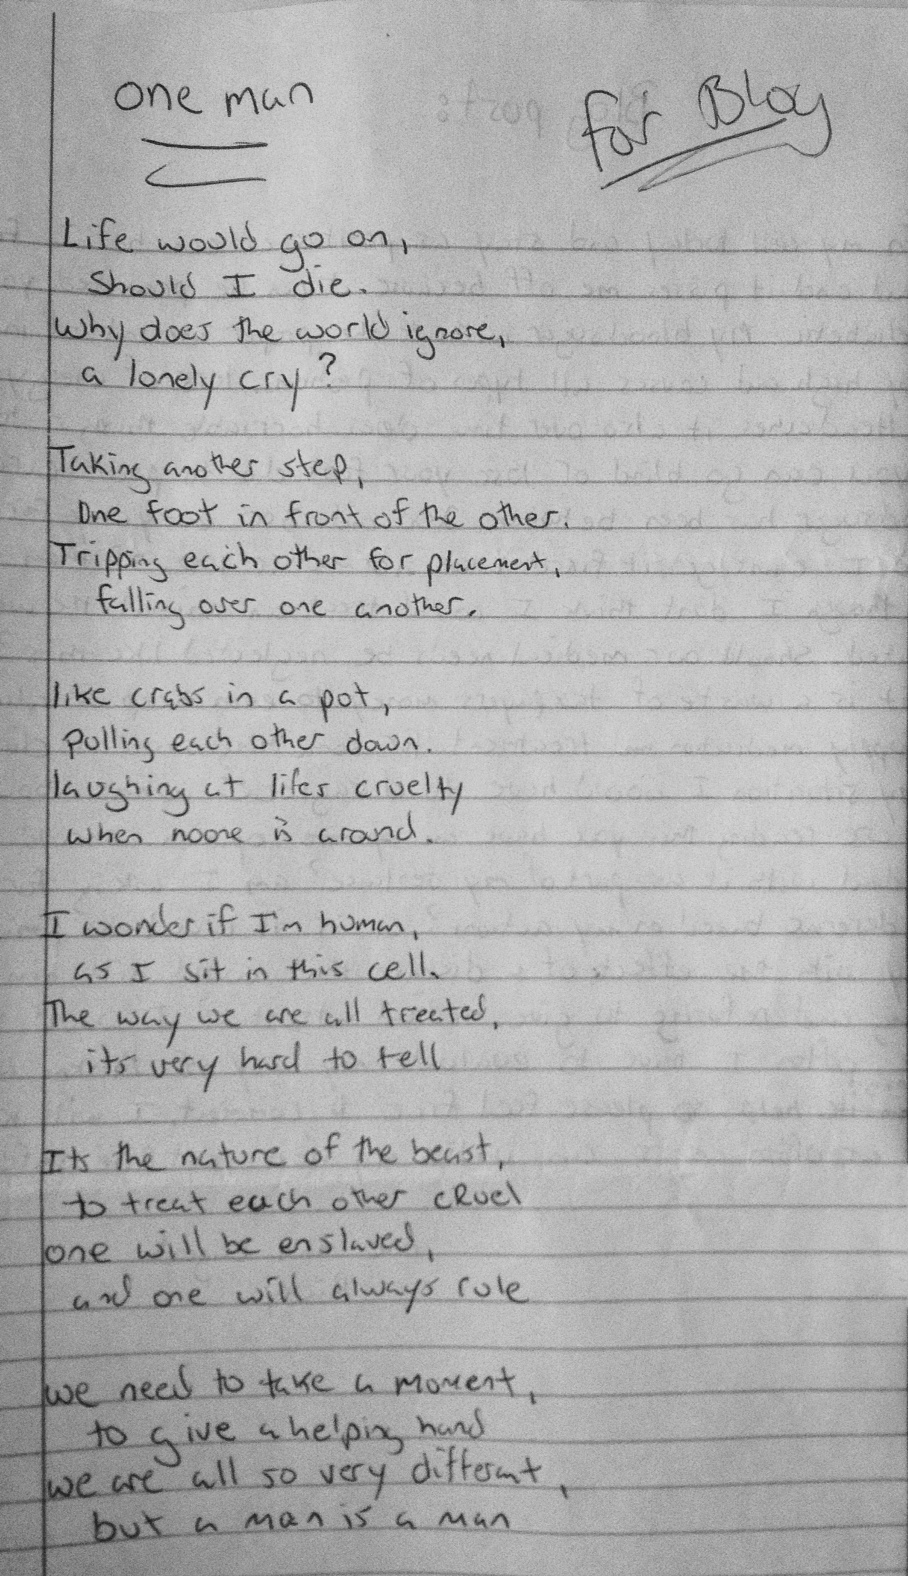 one man
for Blog
Life would go on,
should I die.
Why does the world ignore,
a lonely cry?
Taking another step,
One foot in front of the other.
Tripping each other for placement,
falling over one another.
like crabs in a pot,
pulling each other down.
laughing at lifes cruelty
when noone is around.
I wonder if I'm human,
as I sit in this cell.
The way we are all treated,
its very hard to tell
Its the nature of the beast,
to treat each other cRuel
one will be enslaved,
and one will always rule
we need to take a moment,
to give a helping hand
we are all so very different,
but a man is a man